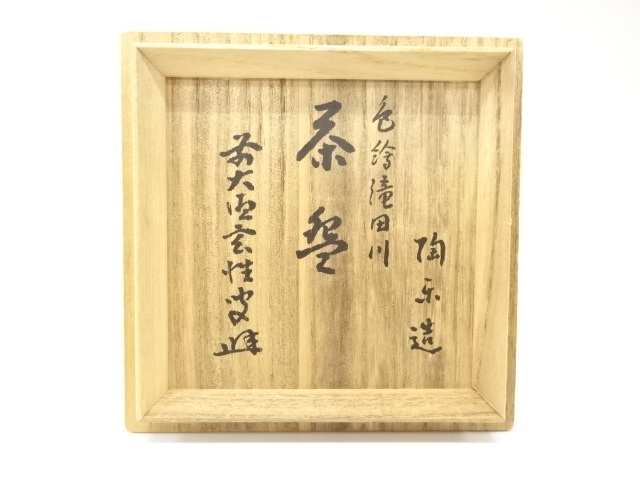 陶楽造
色絵滝田川
茶盌
前大徳玄性叟